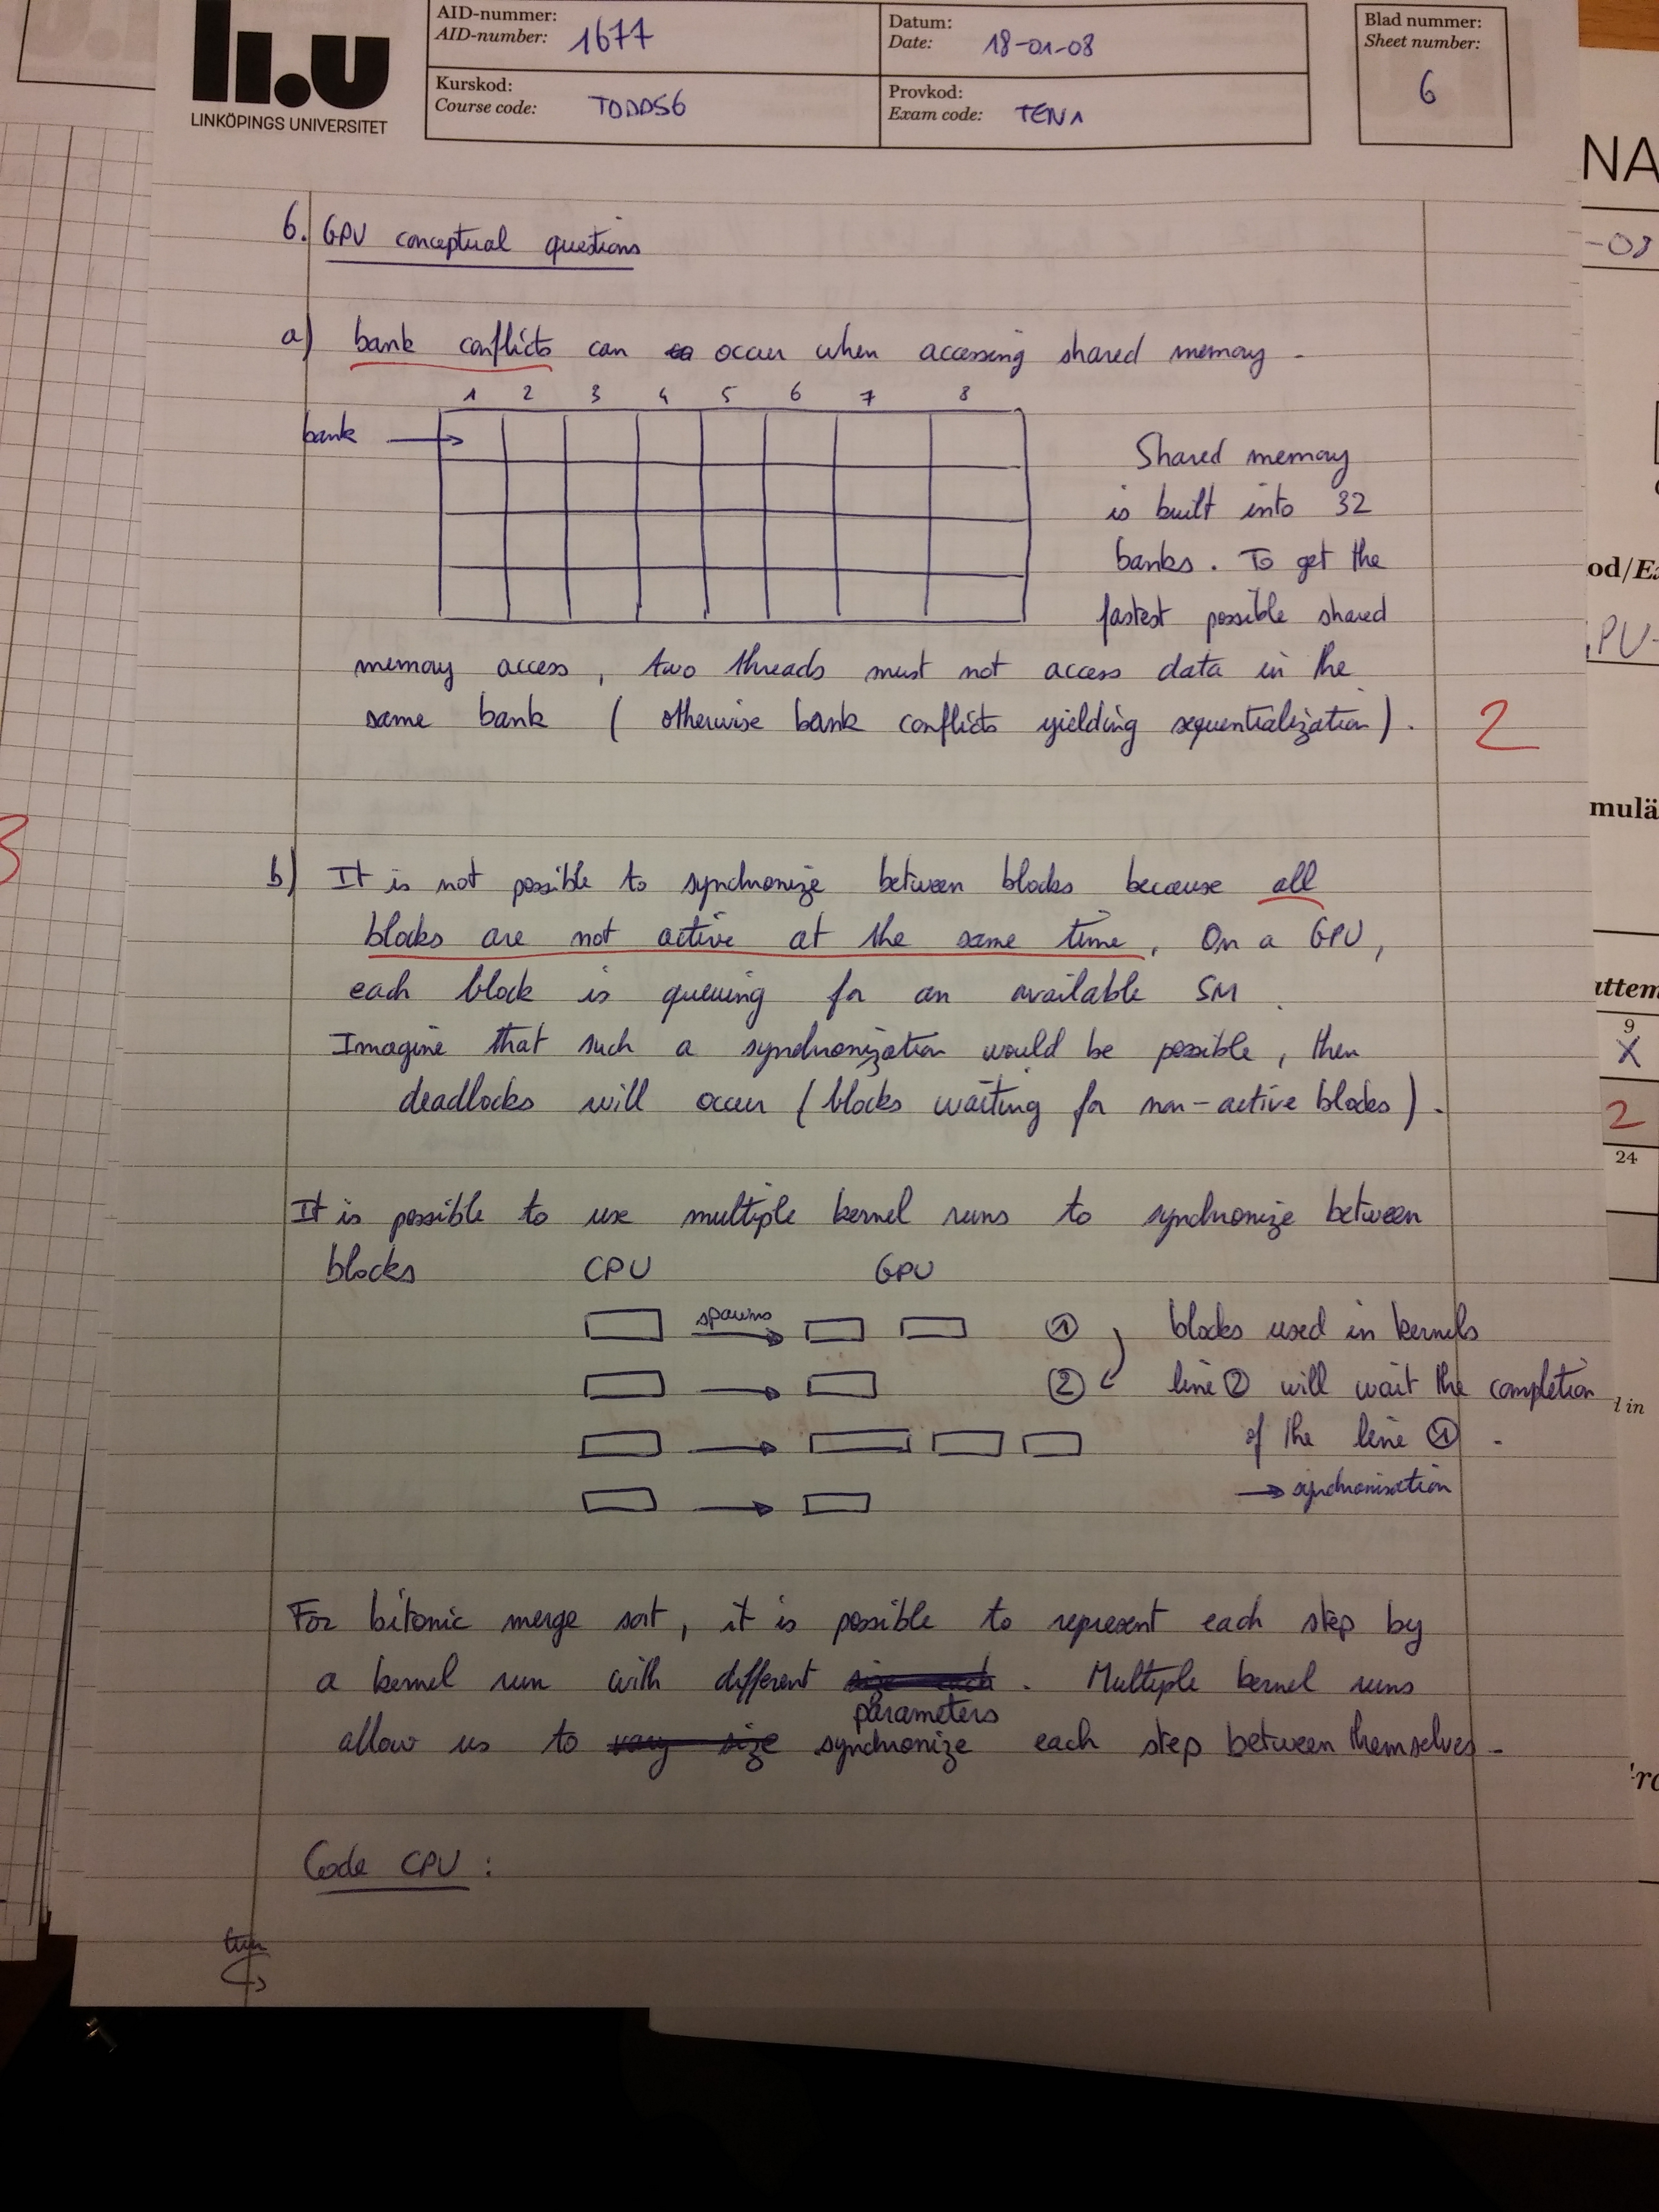 li.u
LINKÖPINGS UNIVERSITET
AID-nummer:
AID-number: 1677
Datum:
Date: 18-01-08
Blad nummer:
Sheet number:
6
Kurskod:
Course code: TDDD56
Provkod:
Exam code: TEN1
6. GPU conceptual questions
a) bank conflicts can occur when accessing shared memory.
1 2 3 4 5 6 7 8
bank
Shared memory
is built into 32
banks. To get the
fastest possible shared
memory access, two threads must not access data in the
same bank (otherwise bank conflicts yielding sequentialization).
2
b) It is not possible to synchronize between blocks because all
blocks are not active at the same time. On a GPU,
each block is queuing for an available SM.
Imagine that such a synchronization would be possible, then
deadlocks will occur (blocks waiting for non-active blocks).
It is possible to use multiple kernel runs to synchronize between
blocks CPU GPU
spawns ① blocks used in kernels
② line ② will wait the completion
of the line ①.
→ synchronisation
For bitonic merge sort, it is possible to represent each step by
a kernel run with different parameters. Multiple kernel runs
allow us to vary size synchronize each step between themselves.
Code CPU:
turn
3
NA
-08
od/Ex
PU-
mulä
attem
9
X
2
24
l in